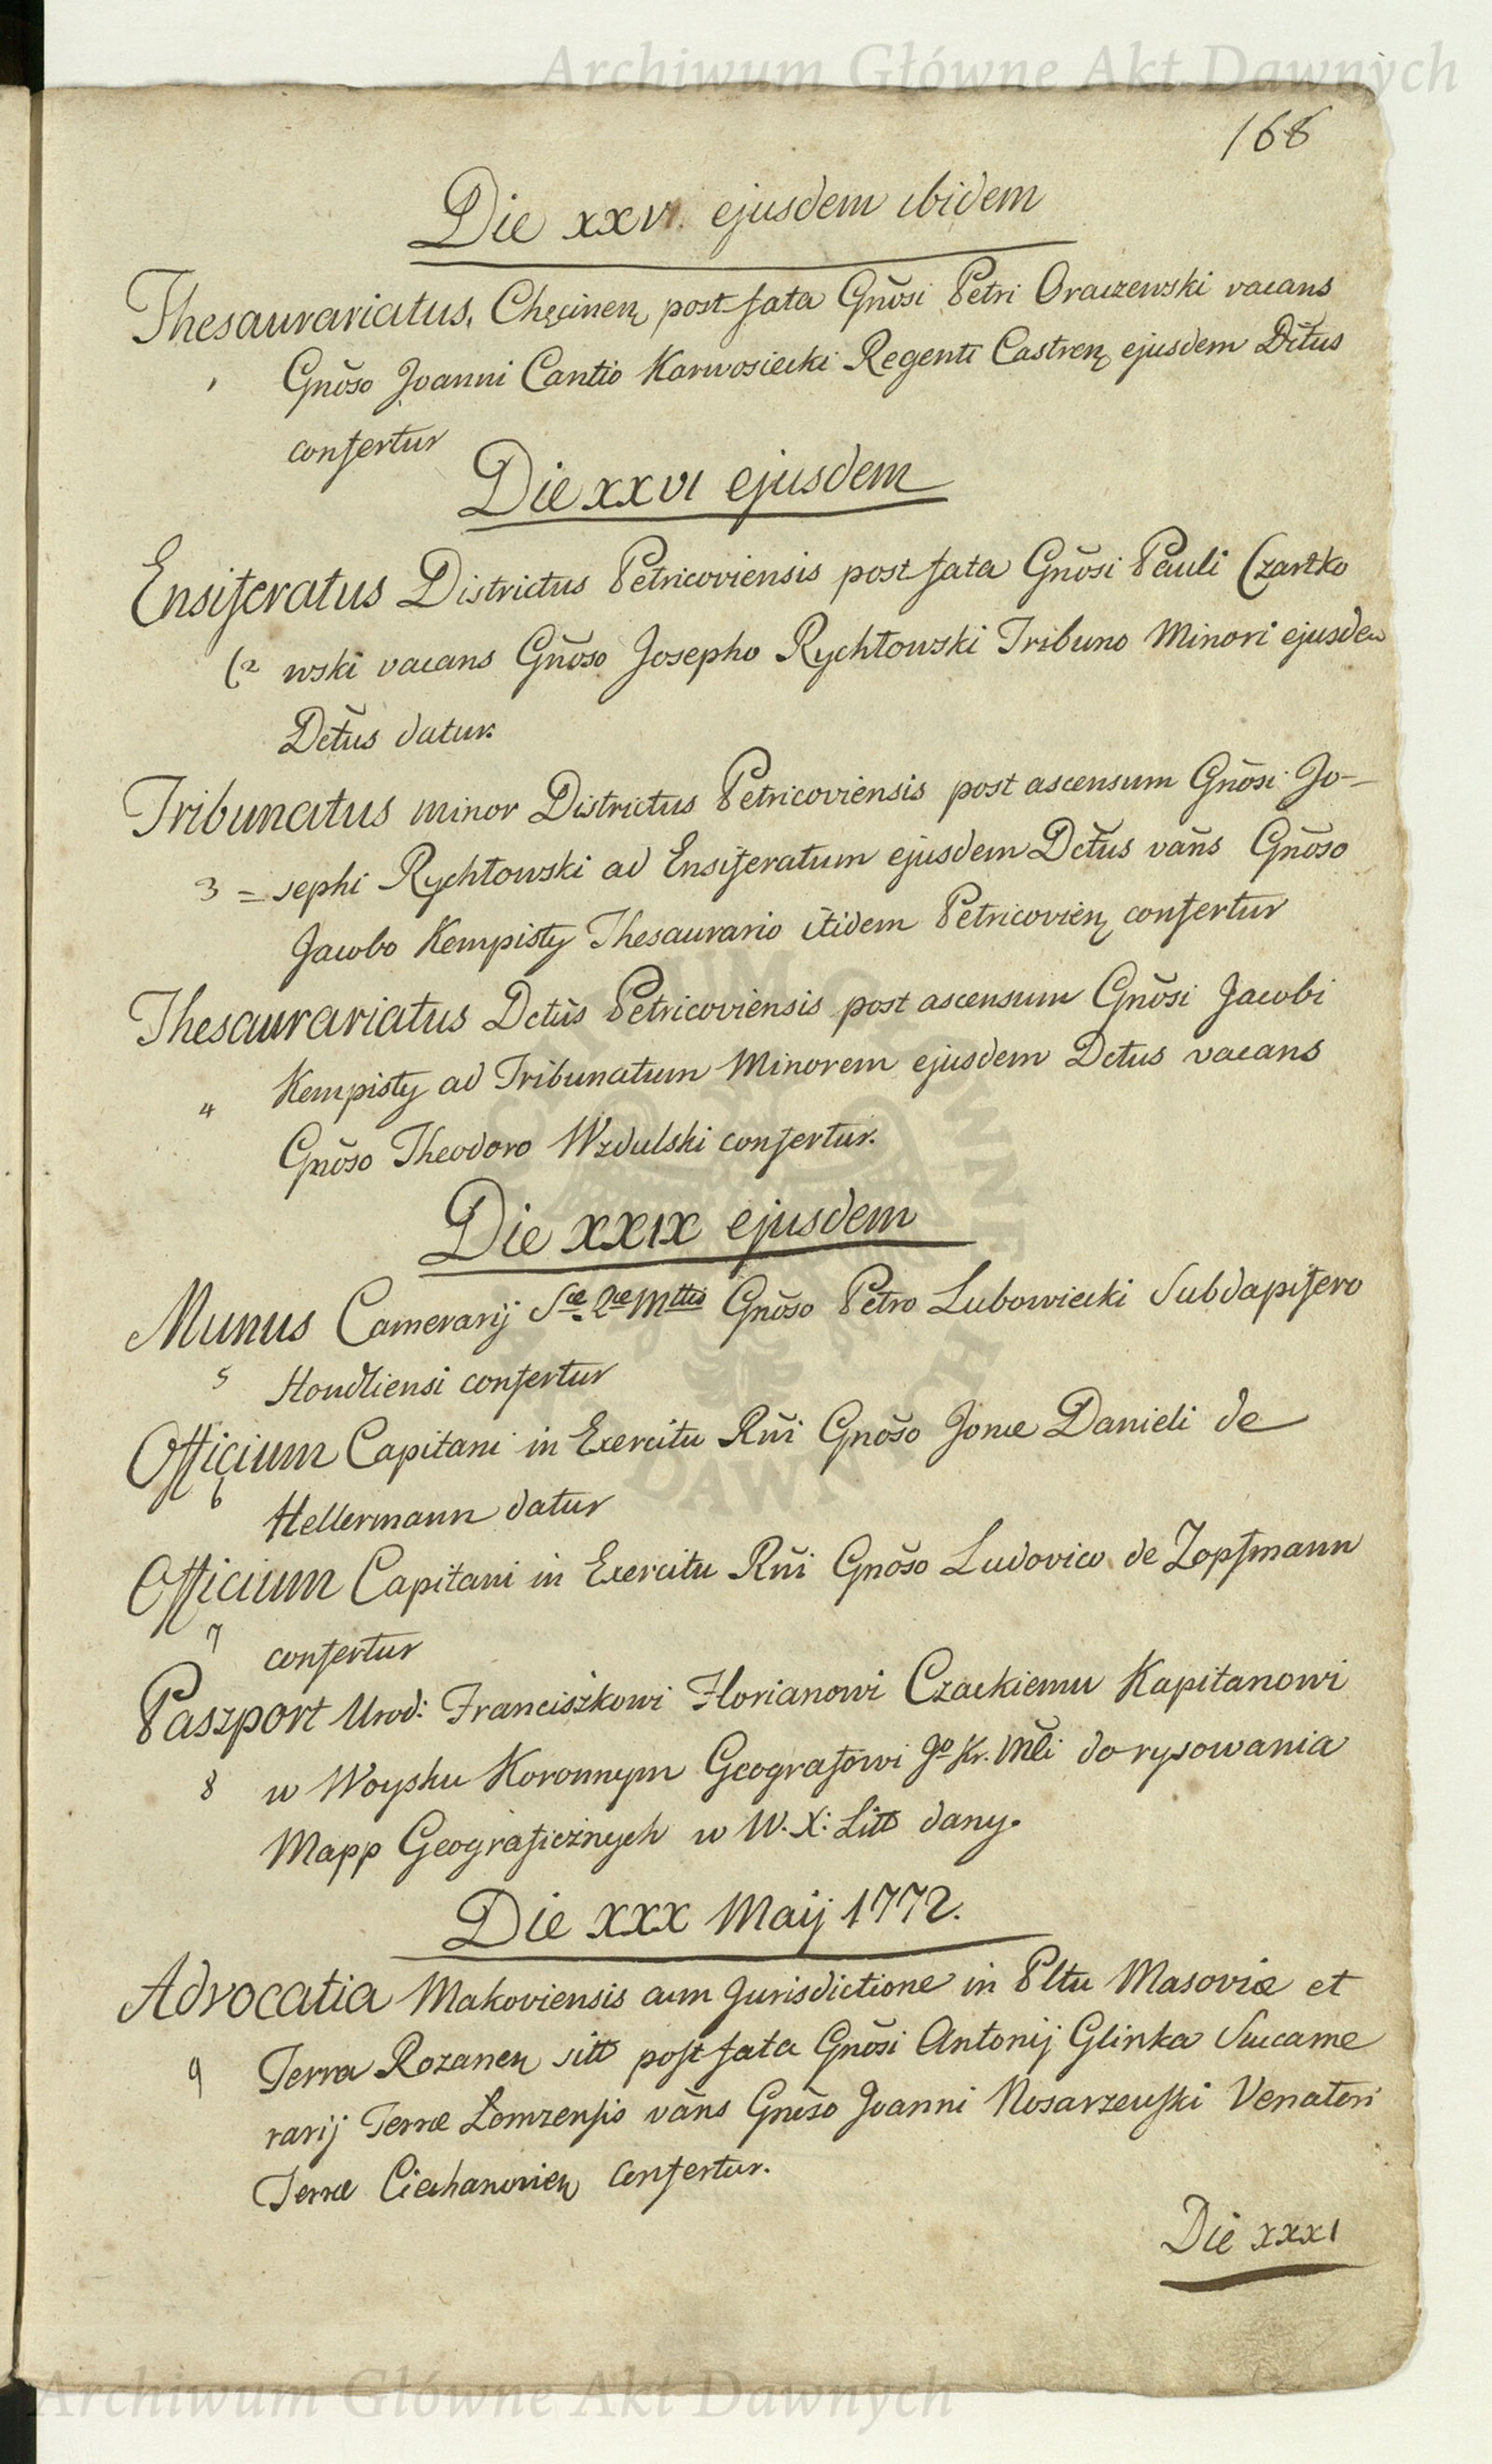 Archiwum Główne Akt Dawnych
168
Die XXV ejusdem ibidem
Thesaurariatus, Chęcinen post fata Gnōsi Petri Oraczewski vacans
1 Gnōso Joanni Cantio Karwosiecki Regenti Castren ejusdem Dc̄tus
confertur
Die XXVI ejusdem
Ensiferatus Districtus Petricoviensis post fata Gnōsi Pauli Czartko
(2 wski vacans Gnōso Josepho Rychłowski Tribuno Minori ejusdem
Dc̄tus datur.
Tribunatus minor Districtus Petricoviensis post ascensum Gnōsi Jo-
3 = sephi Rychłowski ad Ensiferatum ejusdem Dc̄tus vāns Gnōso
Jacobo Kempisty Thesaurario itidem Petricovien confertur
Thesaurariatus Dctūs Petricoviensis post ascensum Gnōsi Jacobi
4 Kempisty ad Tribunatum Minorem ejusdem Dctus vacans
Gnōso Theodoro Wzdulski confertur.
Die XXIX ejusdem
Munus Camerarij Sce. Rce Mttis Gnōso Petro Lubowiecki Subdapifero
5 Hondliensi confertur
Officium Capitani in Exercitu Rn̄i Gnōso Jonæ Danieli de
6 Hellermann datur
Officium Capitani in Exercitu Rn̄i Gnōso Ludovico de Zopfmann
7 confertur
Paszport Urod: Franciszkowi Florianowi Czackiemu Kapitanowi
8 w Woysku Koronnym Geografowi Jo Kr. Mc̄i do rysowania
Mapp Geograficznych w W. X: Litt dany.
Die XXX Maij 1772.
Advocatia Makoviensis cum Jurisdictione in Pltu Masoviæ et
9 Terra Rozanen sitt post fata Gnōsi Antonij Glinka Succame
rarij Terræ Łomzensis vāns Gnōso Joanni Nosarzewski Venatori
Terræ Ciechanovien Confertur.
Die XXXI
Archiwum Główne Akt Dawnych